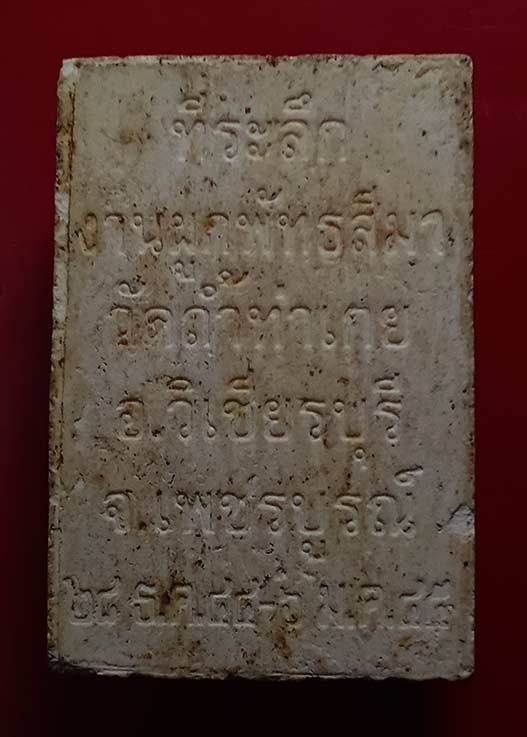 ที่ระลึก
งานผูกพัทธสีมา
วัดถ้ำท่าเกย
อ.วิเชียรบุรี
จ.เพชรบูรณ์
๒๘ ธ.ค.๔๔-๖ ม.ค.๔๕